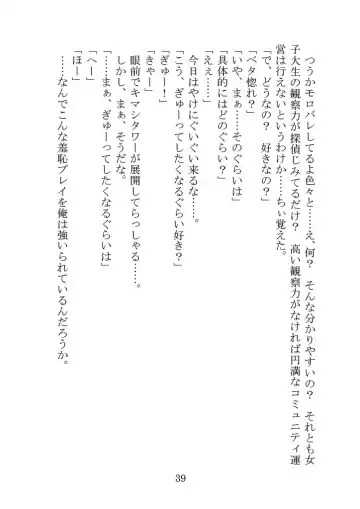 つうかモロバレしてるよ色々と……え、何？　そんな分かりやすいの？　それとも女
子大生の観察力が探偵じみてるだけ？　高い観察力がなければ円満なコミュニティ運
営は行えないというわけか……ちぃ覚えた。
「で、どうなの？　好きなの？」
「ベタ惚れ？」
「いや、まぁ……そのぐらいは」
「具体的にはどのぐらい？」
「えぇ……」
今日はやけにぐいぐい来るな……。
「こう、ぎゅーってしたくなるぐらい好き？」
「ぎゅー！」
「きゃー」
眼前でキマシタワーが展開してらっしゃる……。
しかし、まぁ、そうだな。
「……まぁ、ぎゅーってしたくなるぐらいは」
「へー」
「ほー」
……なんでこんな羞恥プレイを俺は強いられているんだろうか。
39